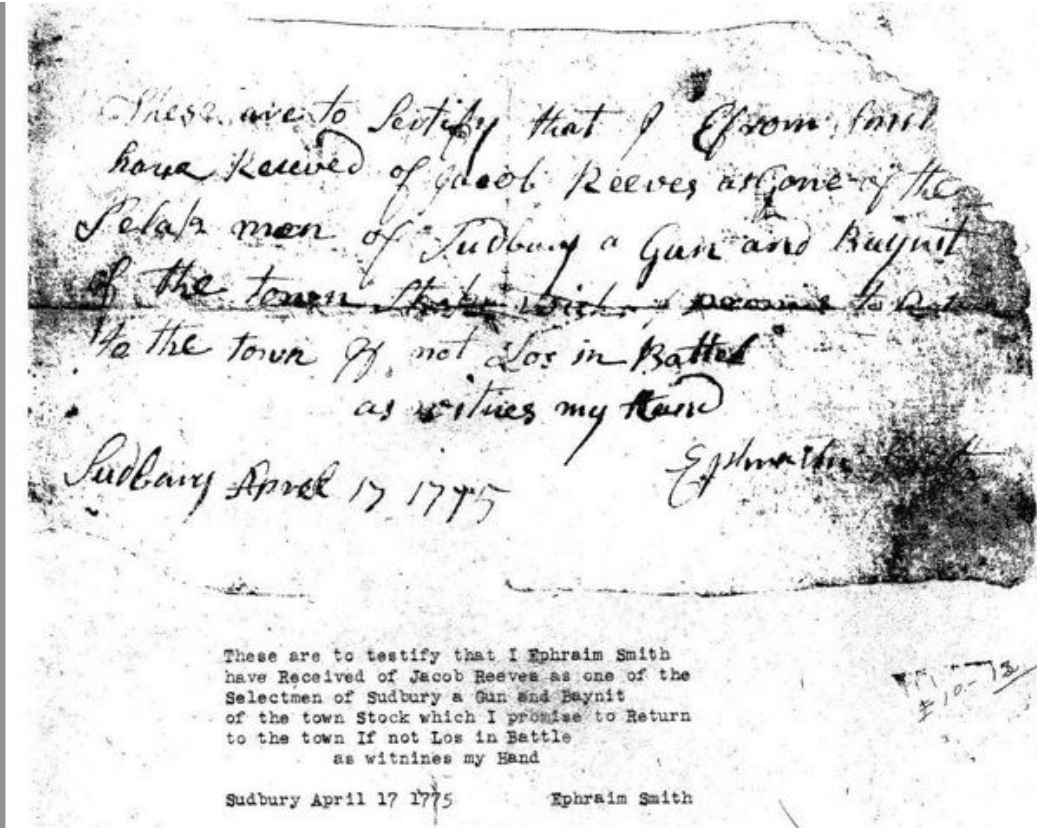 These are to Sertify that I Efrom Smit
have Received of Jacob Reeves as one of the
Selak men of Sudbury a Gun and Baynit
of the town which I promis to
to the town If not Los in Battel
as witnes my Hand
Sudbury Aprel 17 1775
These are to testify that I Ephraim Smith
have Received of Jacob Reeves as one of the
Selectmen of Sudbury a Gun and Baynit
of the town Stock which I promise to Return
to the town If not Los in Battle
as witnines my Hand
Sudbury April 17 1775 Ephraim Smith